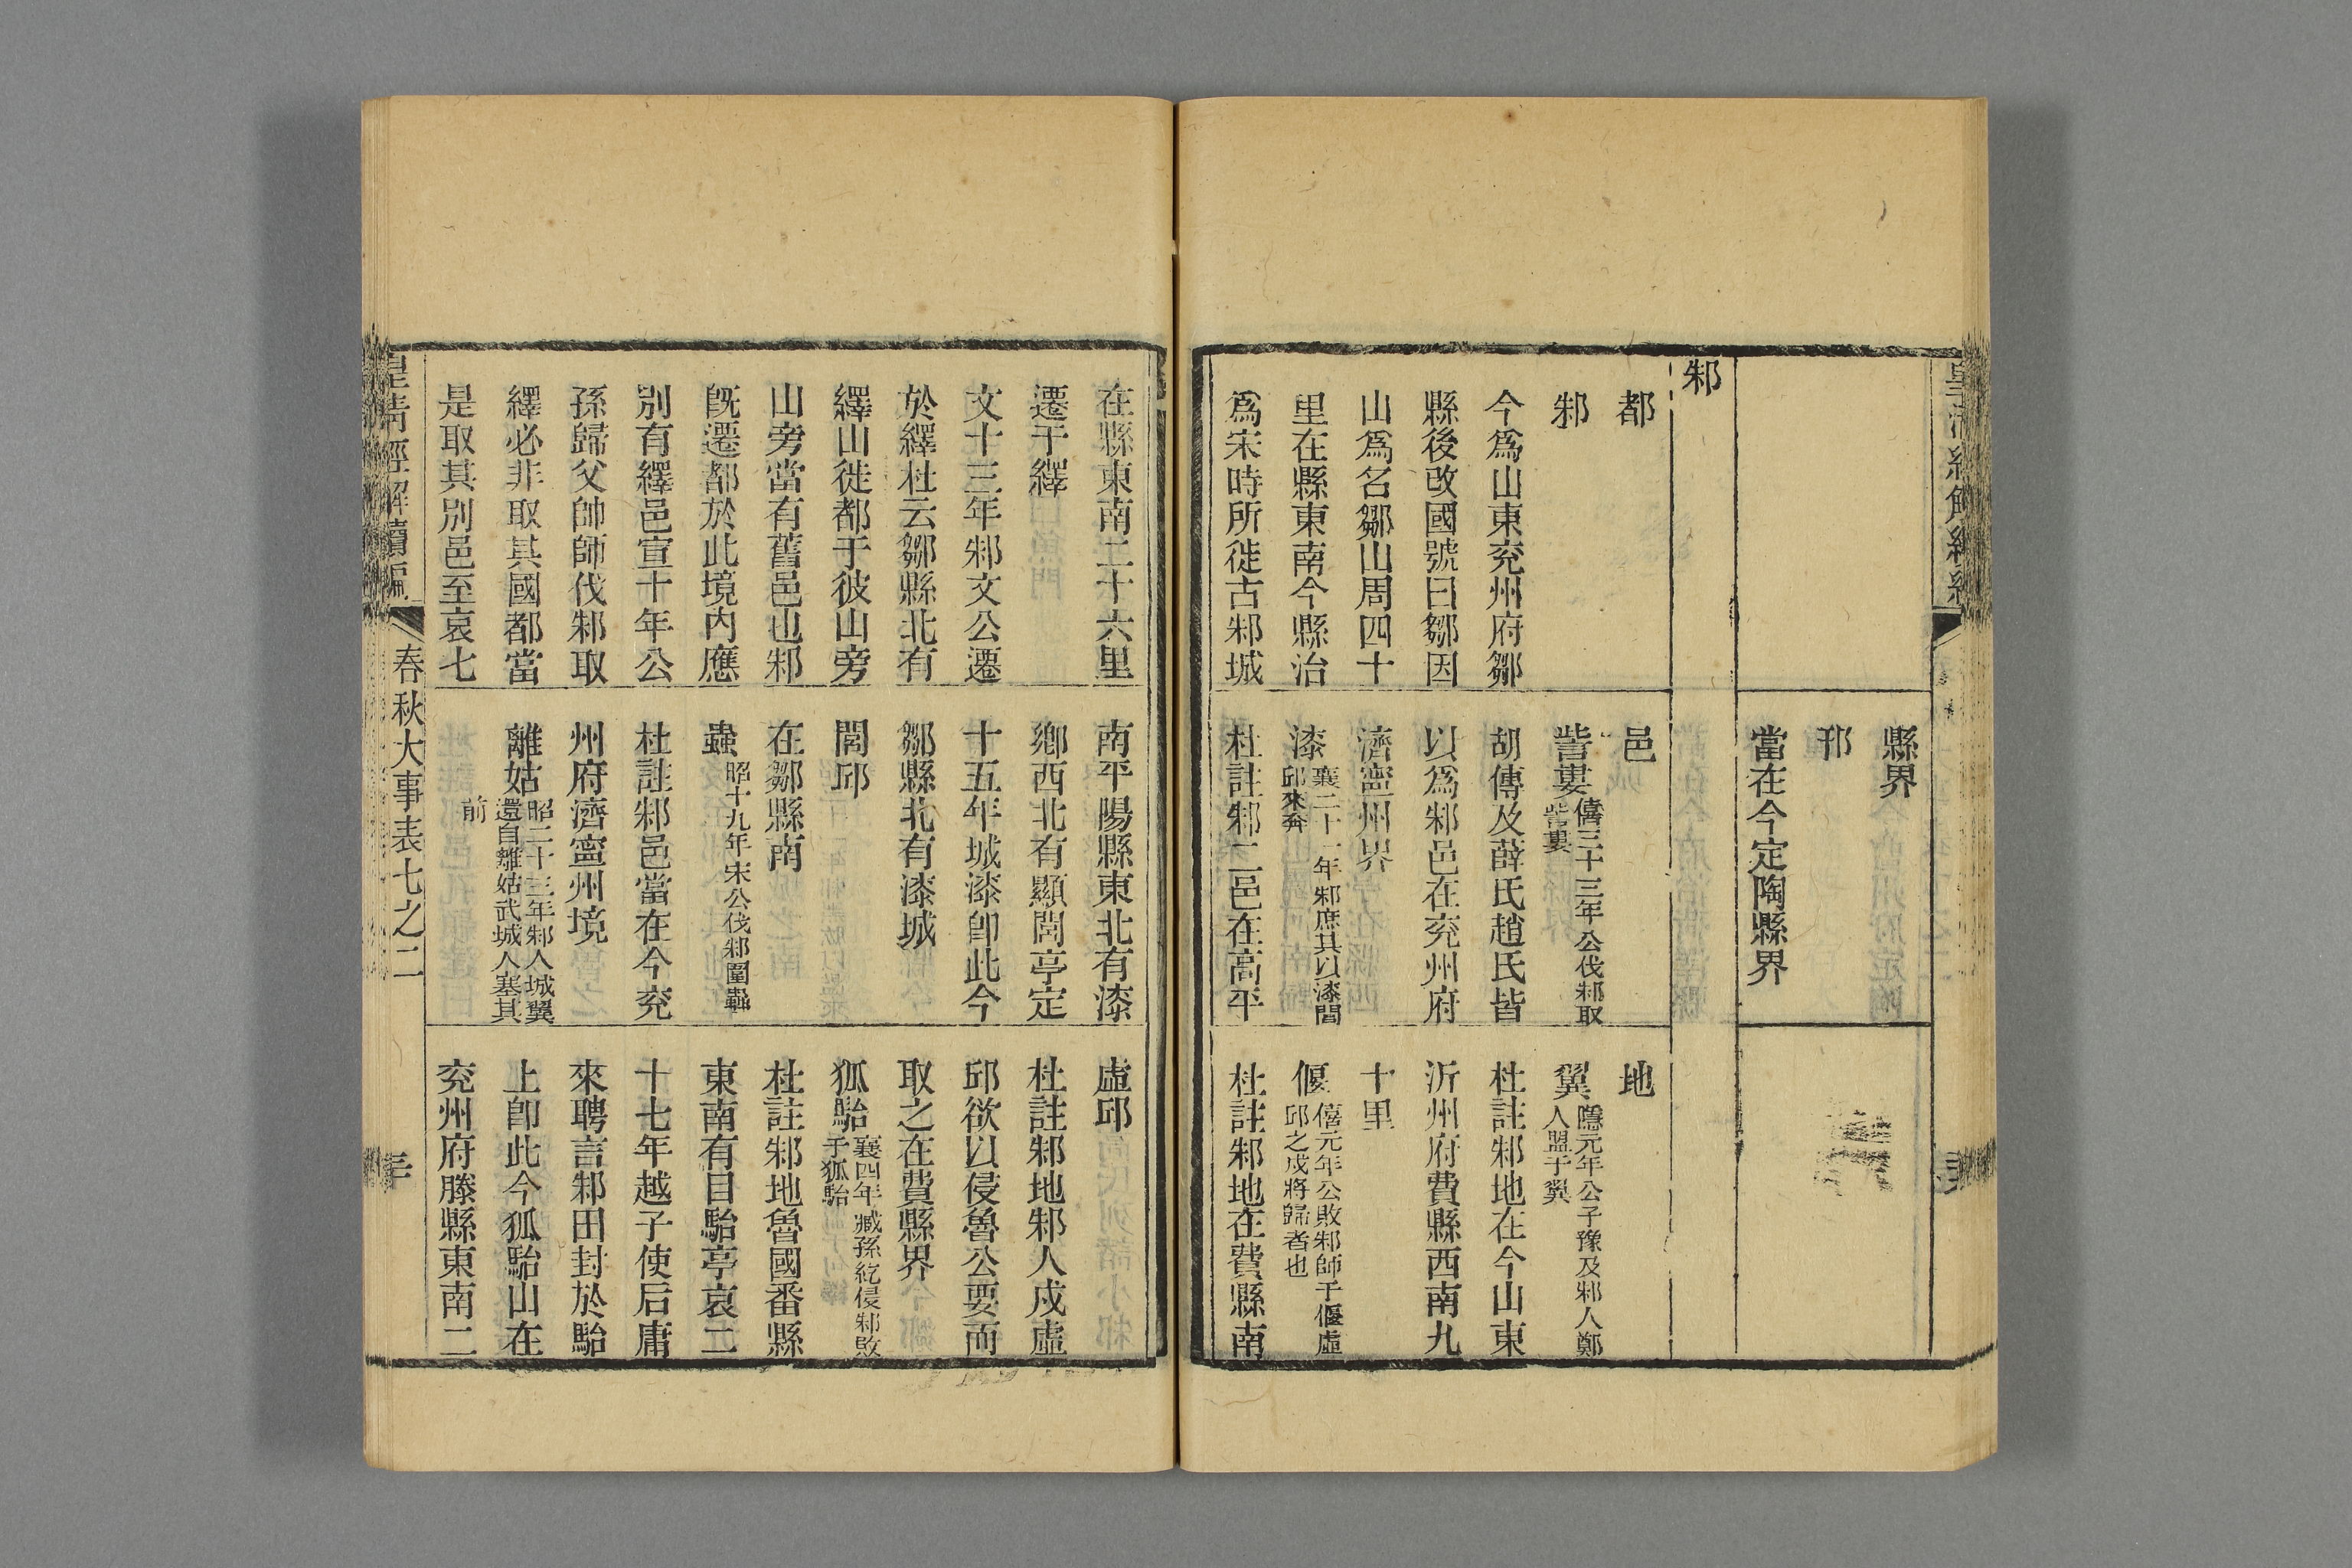 縣界
邘
當在今定陶縣界
邾
都
邾
今爲山東兖州府鄒
縣後改國號曰鄒因
山爲名鄒山周四十
里在縣東南今縣治
爲宋時所徙古邾城
邑
訾婁僖三十三年公伐邾取
訾婁
胡傳及薛氏趙氏皆
以爲邾邑在兖州府
濟寧州界
漆襄二十一年邾庶其以漆閭
邱來奔
杜註邾二邑在高平
地
翼隱元年公子豫及邾人鄭
人盟于翼
杜註邾地在今山東
沂州府費縣西南九
十里
偃僖元年公敗邾師于偃虛
邱之戍將歸者也
杜註邾地在費縣南
在縣東南二十六里
遷于繹
文十三年邾文公遷
於繹杜云鄒縣北有
繹山徙都于彼山旁
山旁當有舊邑也邾
旣遷都於此境內應
別有繹邑宣十年公
孫歸父帥師伐邾取
繹必非取其國都當
是取其別邑至哀七
南平陽縣東北有漆
鄕西北有顯閭亭定
十五年城漆卽此今
鄒縣北有漆城
閭邱
在鄒縣南
蟲昭十九年宋公伐邾圍蟲
杜註邾邑當在今兖
州府濟寧州境
離姑昭二十三年邾人城翼
還自離姑武城人塞其
前
虛邱
杜註邾地邾人戍虛
邱欲以侵魯公要而
取之在費縣界
狐駘襄四年臧孫紇侵邾敗
于狐駘
杜註邾地魯國番縣
東南有目駘亭哀二
十七年越子使后庸
來聘言邾田封於駘
上卽此今狐駘山在
兖州府滕縣東南二
皇清經解續編
春秋大事表七之二